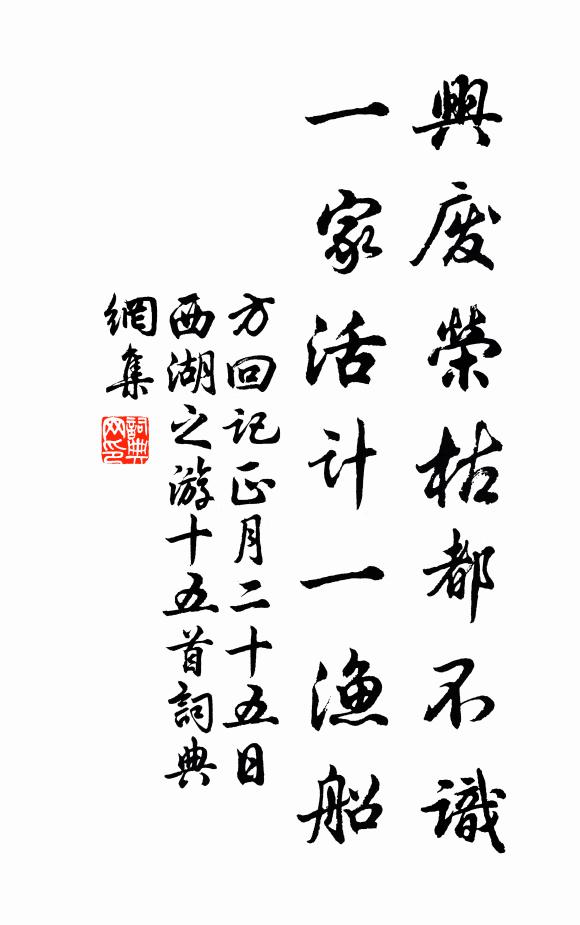 興廢榮枯都不識
一家活計一漁船
方回記正月二十五日
西湖之游十五首詞典
網集
詞典
网印